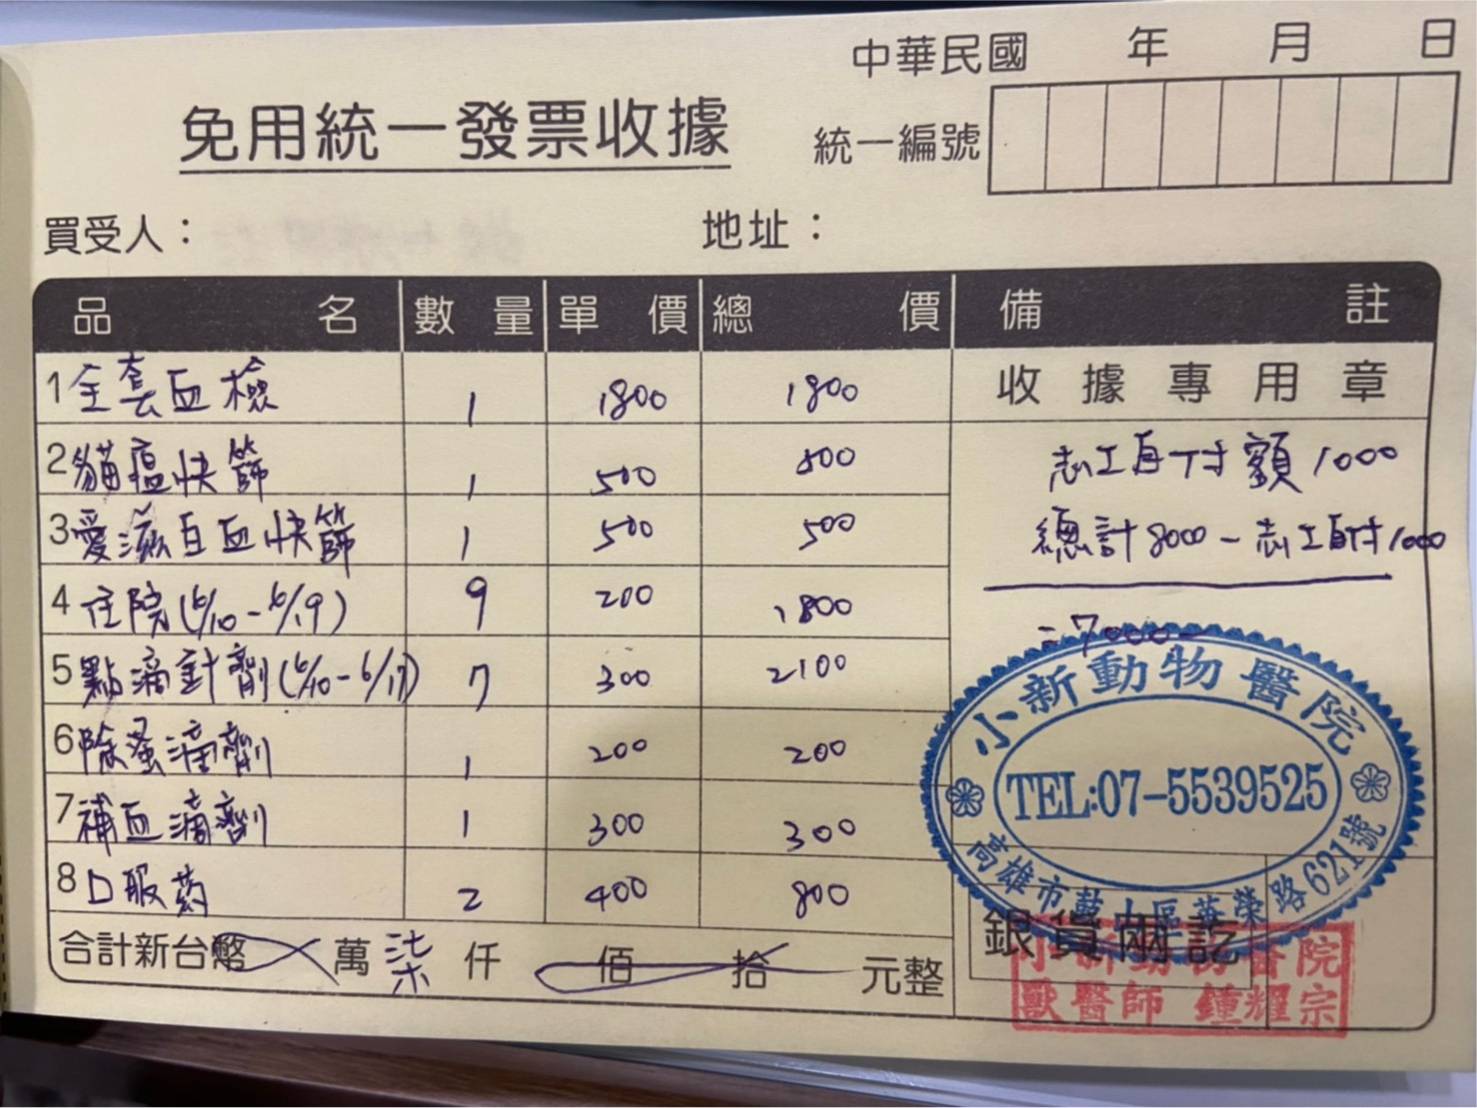 中華民國 年 月 日
免用統一發票收據
統一編號
買受人： 地址：
品名 數量 單價 總價 備註
1 全套血檢 1 1800 1800 收據專用章
2 貓瘟快篩 1 500 500 志工自付額 1000
3 愛滋白血快篩 1 500 500 總計8000-志工自付1000
4 住院(6/10-6/19) 9 200 1800 =7000-
5 點滴針劑(6/10-6/17) 7 300 2100
6 除蚤滴劑 1 200 200
7 補血滴劑 1 300 300
8 口服葯 2 400 800
合計新台幣 萬 柒 仟 佰 拾 元整
小新動物醫院
TEL:07-5539525
高雄市鼓山區華榮路621號
銀貨兩訖
小新動物醫院
獸醫師 鍾耀宗